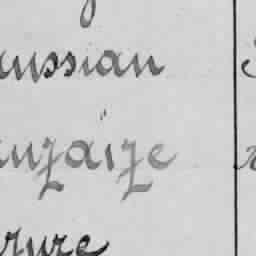 aussian
anzaize
rure